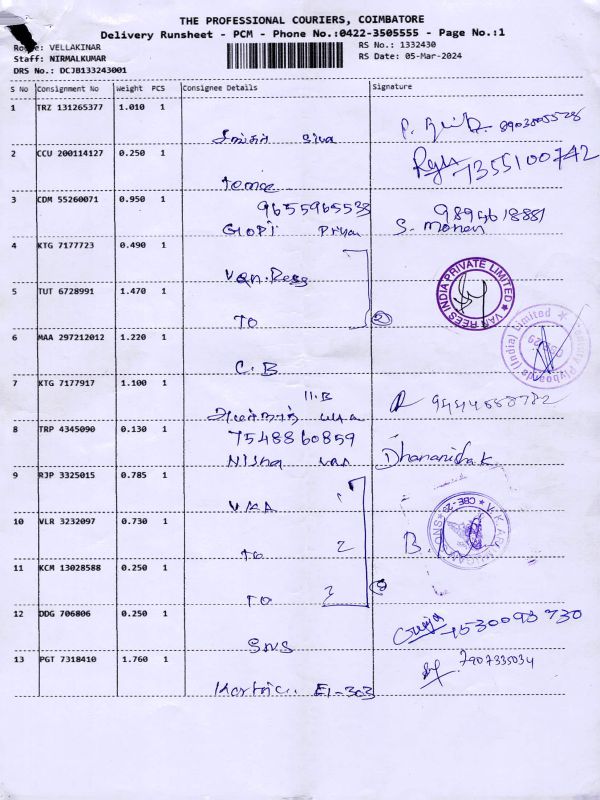 THE PROFESSIONAL COURIERS, COIMBATORE
Delivery Runsheet - PCM - Phone No.:0422-3505555 - Page No.:1
Route: VELLAKINAR RS No.: 1332430
Staff: NIRMALKUMAR RS Date: 05-Mar-2024
DRS No.: DCJB133243001
S No Consignment No Weight PCS Consignee Details Signature
1 TRZ 131265377 1.010 1
Siva 8903805528
2 CCU 200114127 0.250 1
7355100742
3 CDM 55260071 0.950 1 9655965533 9895618881
GOPI Priya S. Mohan
4 KTG 7177723 0.490 1
Van Rees
VAN REES INDIA PRIVATE LIMITED
5 TUT 6728991 1.470 1
TO 2
6 MAA 297212012 1.220 1
C.B
7 KTG 7177917 1.100 1
11.B
9444558782
8 TRP 4345090 0.130 1 7548860859
Nisha
9 RJP 3325015 0.785 1
1
10 VLR 3232097 0.730 1
to 2 B.
11 KCM 13028588 0.250 1
TO 3
12 DDG 706806 0.250 1
SNS 7530098730
13 PGT 7318410 1.760 1 7907335034
E1-303